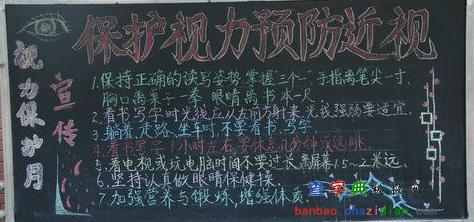 保护视力预防近视
视力保护月
宣传
1.保持正确的读写姿势,掌握三个一,手指离笔尖一寸,
胸口离桌子一拳,眼睛离书本一尺
2.看书写字时光线应从左前方射来,光线强弱要适宜,
3.躺着,走路,坐车时不要看书,写字
4.看书写字1小时左右,要休息几分钟或远眺。
5.看电视或玩电脑时间不要过长,离屏幕1.5—2米远。
6.坚持认真做眼睛保健操。
7.加强营养与锻炼,增强体质。
查字典
banbao.chazidian.com